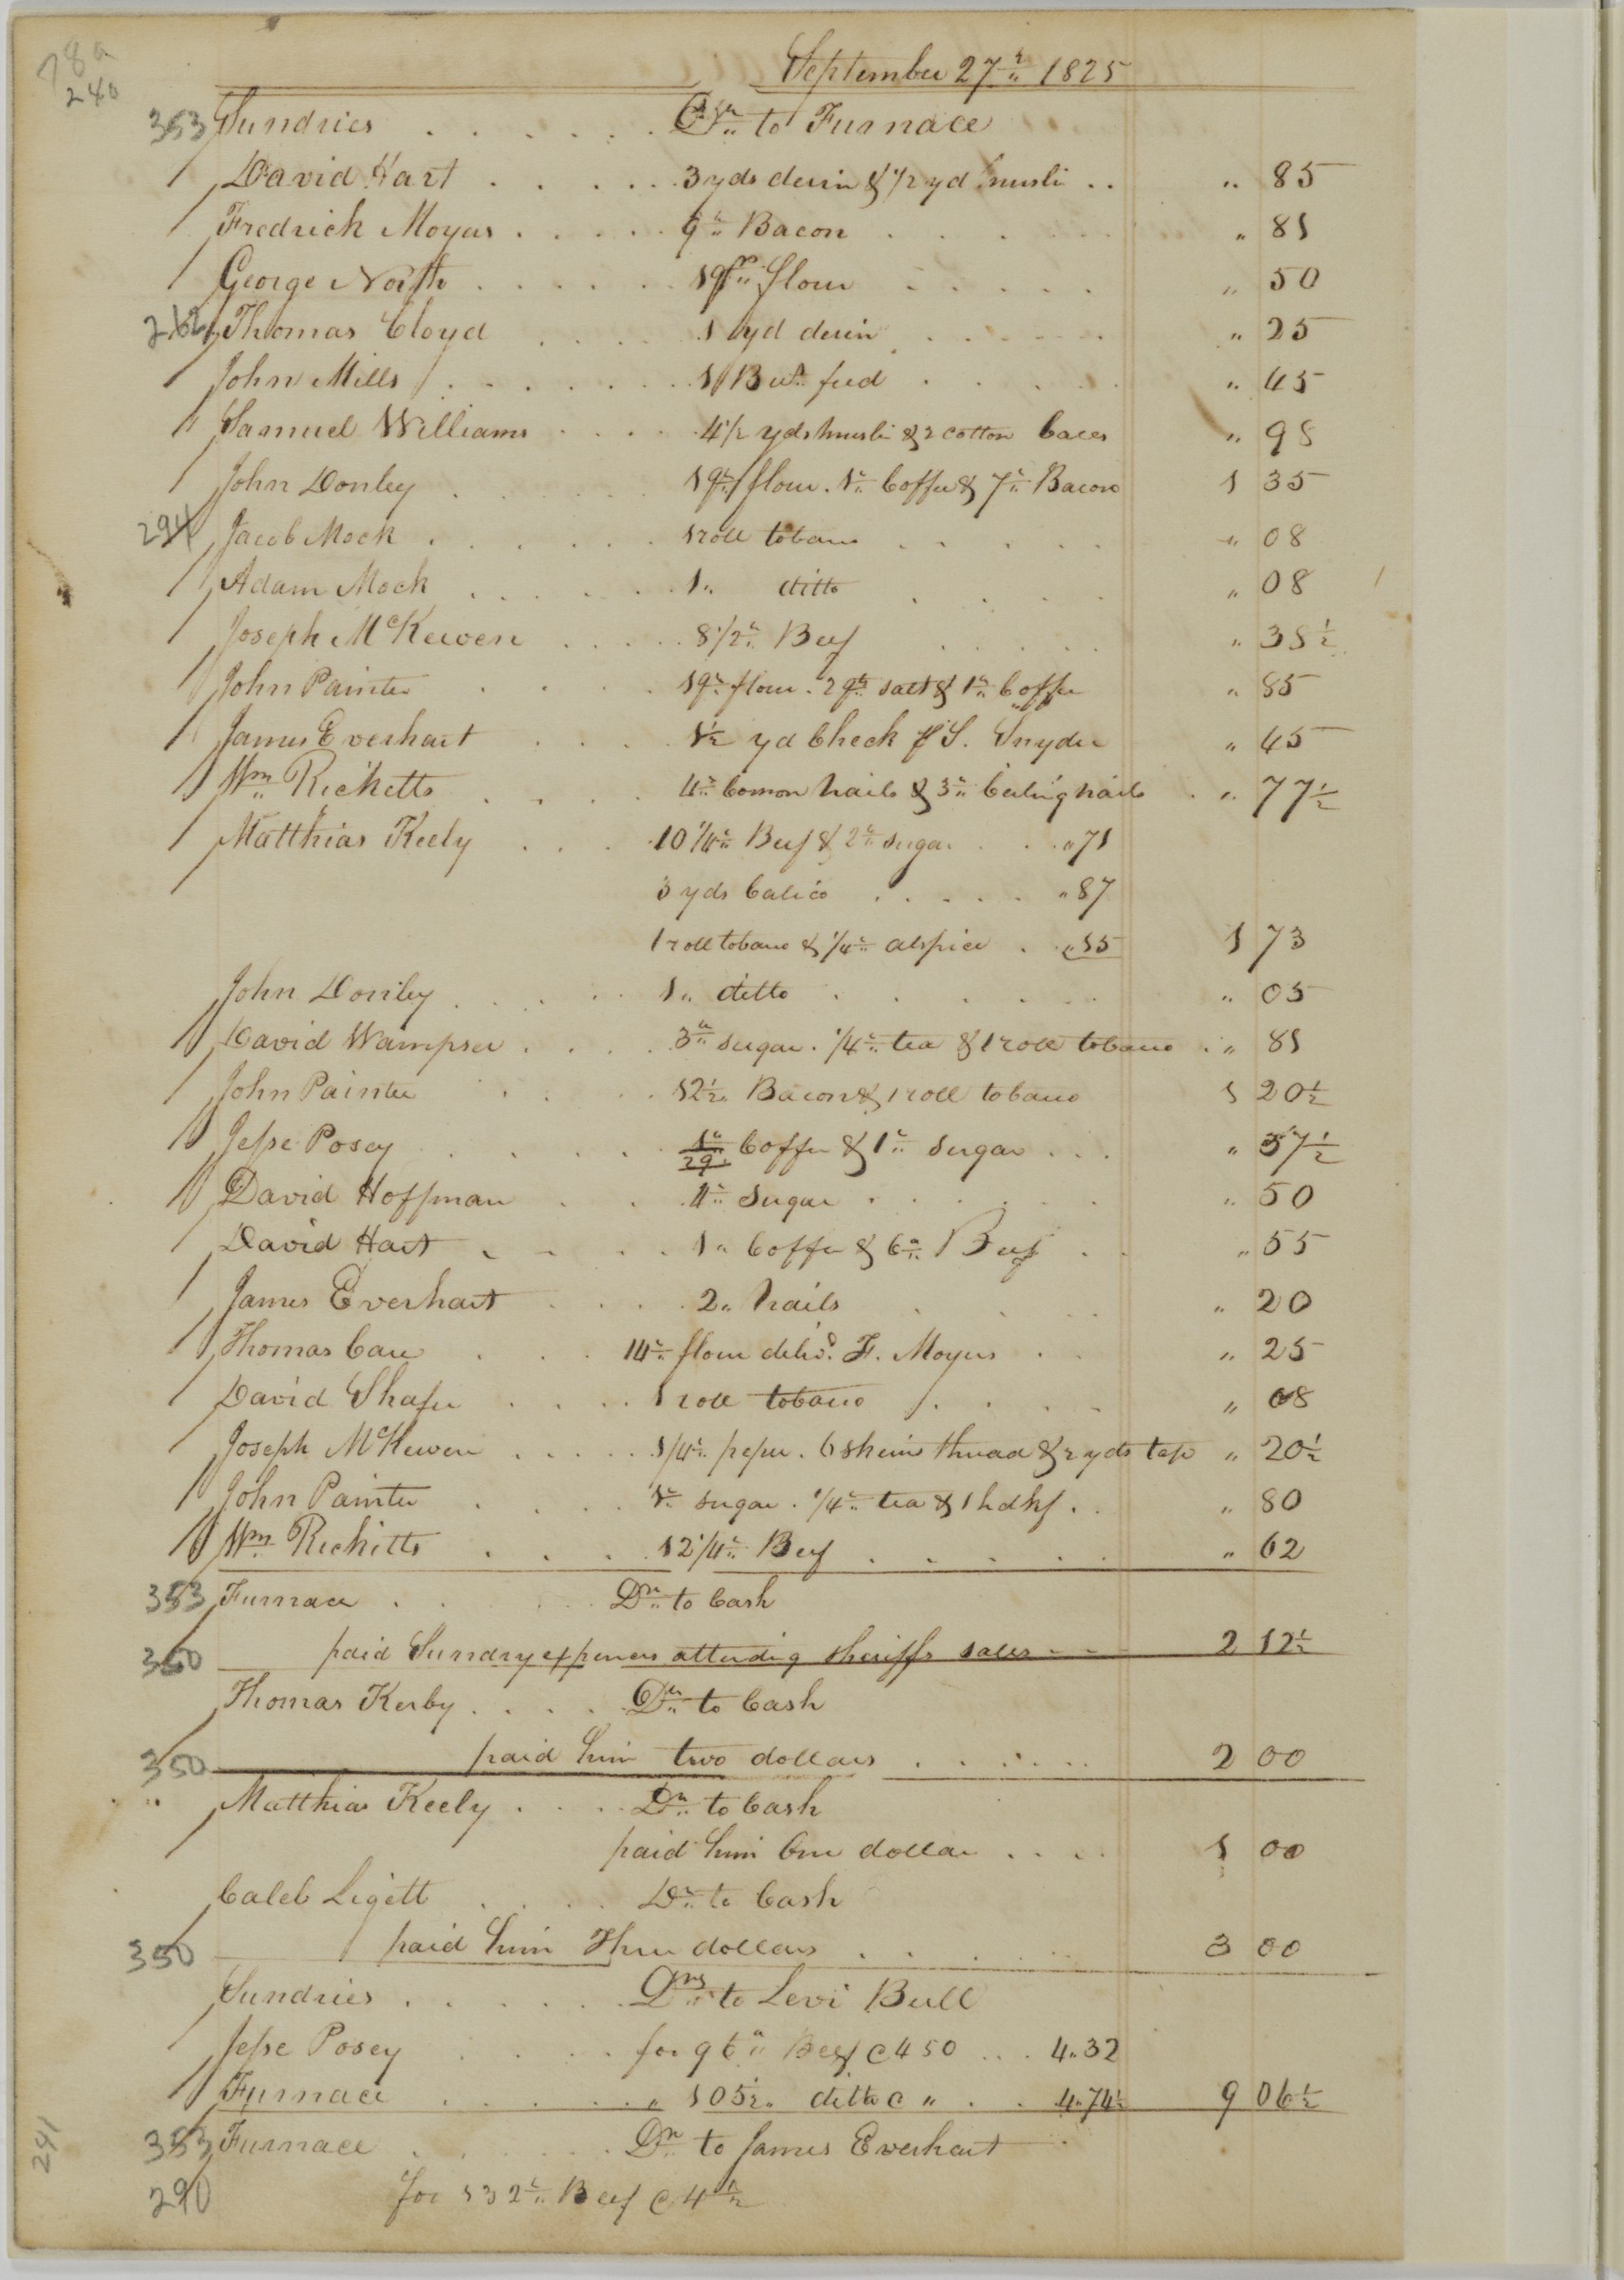 78a
240
September 27th 1825
353 Sundries . . . . . . Drs to Furnace
David Hart . . . . . 3 yds denin & 1/2 yd musli . . " 85
Fredrick Moyers . . . . . 9lb Bacon . . . . " 81
George North . . . . . 1 qr flour . . . . . " 50
262 Thomas Cloyd . . . . 1 yd denin . . . . . " 25
John Mills . . . . . . . 1 Bus feed . . . . " 45
Samuel Williams . . . . 4 1/2 yds musli & 2 cotton " 98
John Donley . . . . . . 1 qr flour . 1lb Coffee & 7lb Bacon 1 35
294 Jacob Mock . . . . . . 1 roll tobacco . . . . . " 08
Adam Mock . . . . . . 1 " ditto . . . . " 08
Joseph McKewen . . . . . 8 1/2lb Beef . . . . " 38 1/2
John Painter . . . . 1 qr flour . 2 qts salt & 1lb Coffee " 85
James Everhart . . . . 1 1/2 yd Check pr S. Snyder " 45
Wm Ricketts . . . . 4lb Comon nails & 3lb Ceiling nails . " 77 1/2
Matthias Keely . . . . 10 1/4lb Beef & 2lb sugar . . " 71
3 yds Calico . . . . . " 87
1 roll tobacco & 1/4lb alspice . " 15 1 73
John Donley . . . . . 1 " ditto . . . . . . " 05
David Wampser . . . . 3lb sugar . 1/4lb tea & 1 roll tobacco . " 81
John Painter . . . . 12 1/2 " Bacon & 1 roll tobacco 1 20 1/2
Jesse Posey . . . . . 1lb Coffee & 1lb sugar . . . " 37 1/2
29
David Hoffman . . . 4lb sugar . . . . . . " 50
David Hart . . . . 1 " Coffee & 6lb Beef . . " 55
James Everhart . . . . 2 " nails . . . . " 20
Thomas Care . . . 14lb flour delivd. F. Moyers . . " 25
David Shafer . . . . 1 roll tobacco . . . . " 08
Joseph McKewen . . . . . 1/4lb peper . 6 skeins thread & 2 yds tape " 20 1/2
John Painter . . . . 1lb sugar . 1/4lb tea & 1 hdkf . . " 80
Wm Ricketts . . . 12 1/4lb Beef . . . . . " 62
353 Furnace . . . . . Dr to Cash
350 paid Sundry expences attending sheriffs sales - - 2 12 1/2
Thomas Kerby . . . . Dr to Cash
350 paid him two dollars . . . . . . 2 00
" Matthias Keely . . . . Dr to Cash
paid him One dollar . . . . 1 00
Caleb Ligett . . . . Dr to Cash
350 paid him Three dollars . . . . . . 3 00
Sundries . . . . . . Drs to Levi Bull
Jesse Posey . . . . for 96lb Beef @ 450 . . . 4.32
Furnace . . . . . . " 105 1/2 " ditto @ " . . 4.74 1/2 9 06 1/2
353 Furnace . . . . . Dr to James Everhart
290 for 132lb Beef @ 4 1/2
291